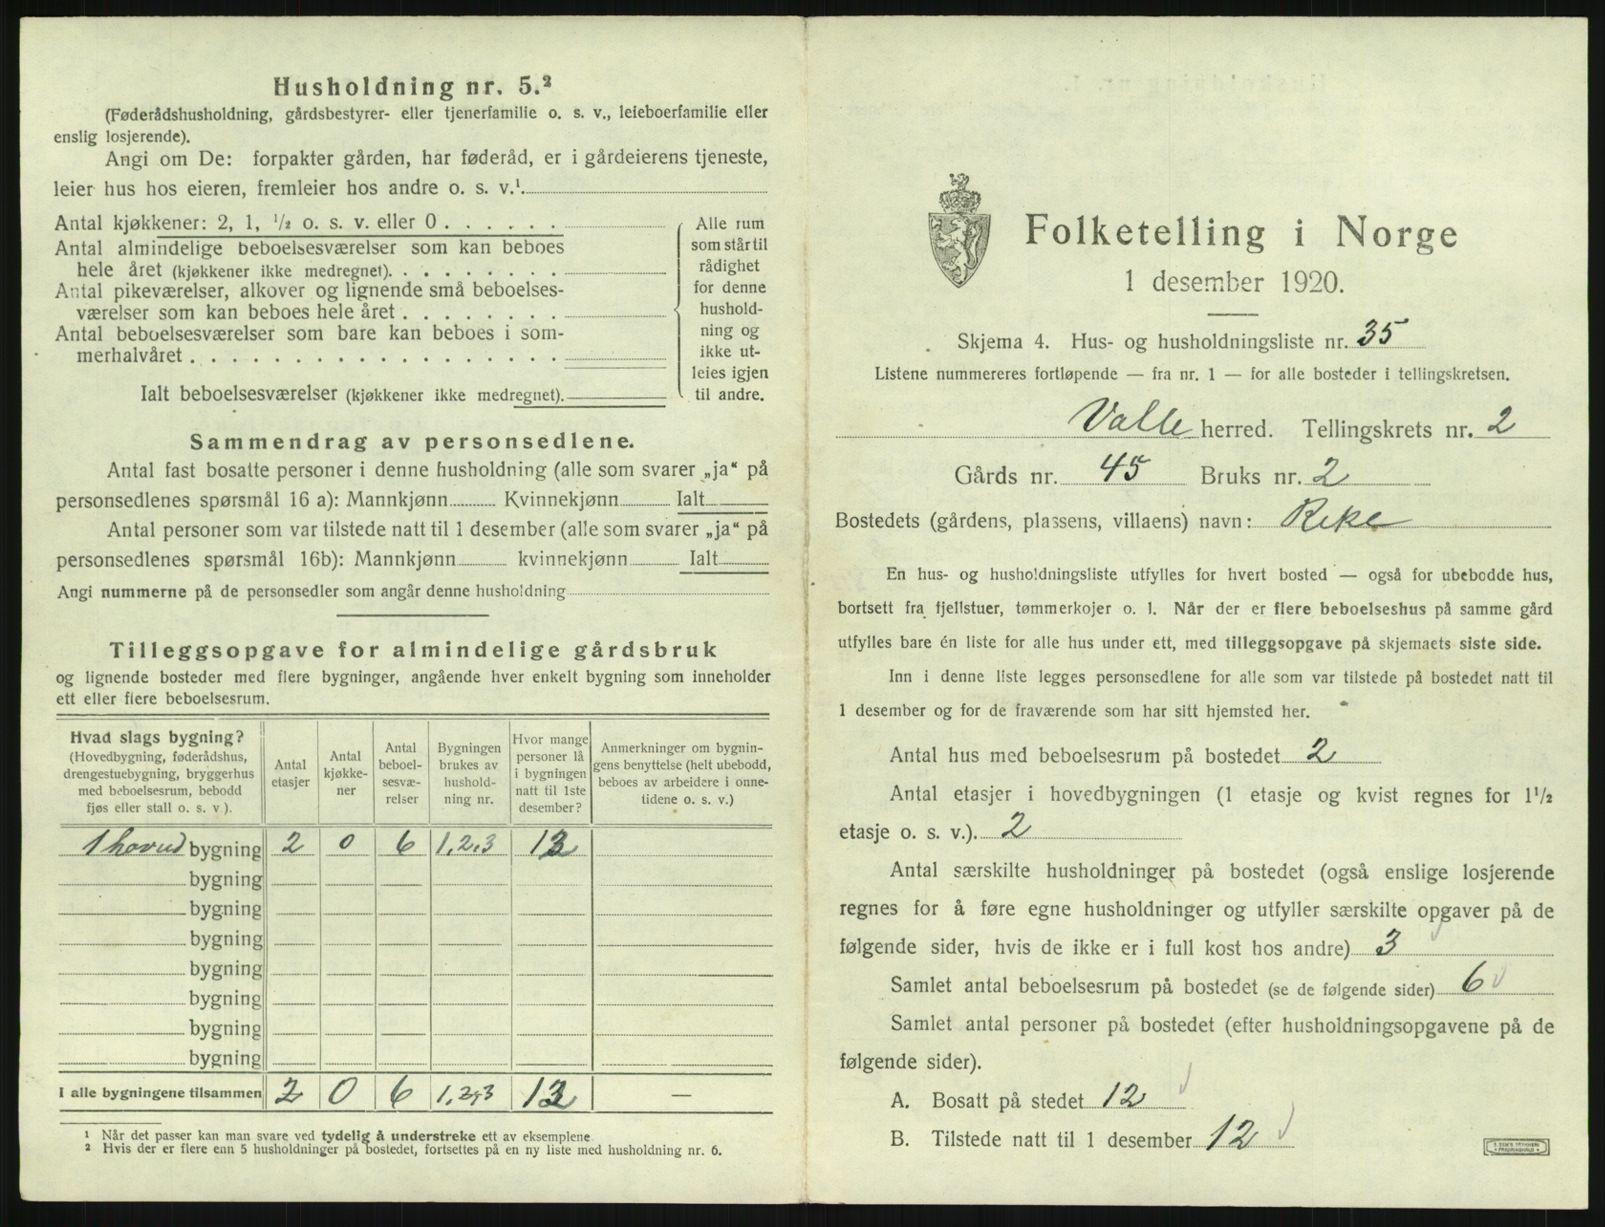 Husholdning nr. 5.²
(Føderådshusholdning, gårdsbestyrer- eller tjenerfamilie o. s. v., leieboerfamilie eller
enslig losjerende).
Angi om De: forpakter gården, har føderåd, er i gårdeierens tjeneste,
leier hus hos eieren, fremleier hos andre o. s. v.¹
Antal kjøkkener: 2, 1, ½ o. s. v. eller 0
Antal almindelige beboelsesværelser som kan beboes
hele året (kjøkkener ikke medregnet).
Antal pikeværelser, alkover og lignende små beboelses-
værelser som kan beboes hele året
Antal beboelsesværelser som bare kan beboes i som-
merhalvåret
Ialt beboelsesværelser (kjøkkener ikke medregnet).
Alle rum
som står til
rådighet
for denne
hushold-
ning og
ikke ut-
leies igjen
til andre.
Sammendrag av personsedlene.
Antal fast bosatte personer i denne husholdning (alle som svarer „ja“ på
personsedlenes spørsmål 16 a): Mannkjønn Kvinnekjønn Ialt
Antal personer som var tilstede natt til 1 desember (alle som svarer „ja“ på
personsedlenes spørsmål 16b): Mannkjønn kvinnekjønn Ialt
Angi nummerne på de personsedler som angår denne husholdning
Tilleggsopgave for almindelige gårdsbruk
og lignende bosteder med flere bygninger, angående hver enkelt bygning som inneholder
ett eller flere beboelsesrum.
Hvad slags bygning?
(Hovedbygning, føderådshus,
drengestuebygning, bryggerhus
med beboelsesrum, bebodd
fjøs eller stall o. s. v ).
Antal
etasjer
Antal
kjøkke-
ner
Antal
beboel-
sesvæ-
relser
Bygningen
brukes av
hushold-
ning nr.
Hvor mange
personer lå
i bygningen
natt til 1ste
desember?
Anmerkninger om bygnin-
gens benyttelse (helt ubebodd,
beboes av arbeidere i onne-
tidene o. s. v.)
1 hovud bygning 2 0 6 1,2,3 12
bygning
bygning
bygning
bygning
bygning
bygning
bygning
I alle bygningene tilsammen 2 0 6 1,2,3 12 —
¹ Når det passer kan man svare ved tydelig å understreke ett av eksemplene
² Hvis der er flere enn 5 husholdninger på bostedet, fortsettes på en ny liste med husholdning nr. 6.
Folketelling i Norge
1 desember 1920.
Skjema 4. Hus- og husholdningsliste nr. 35
Listene nummereres fortløpende — fra nr. 1 — for alle bosteder i tellingskretsen.
Valle herred. Tellingskrets nr. 2
Gårds nr. 45 Bruks nr. 2
Bostedets (gårdens, plassens, villaens) navn: Rike
En hus- og husholdningsliste utfylles for hvert bosted — også for ubebodde hus,
bortsett fra fjellstuer, tømmerkojer o. l. Når der er flere beboelseshus på samme gård
utfylles bare én liste for alle hus under ett, med tilleggsopgave på skjemaets siste side.
Inn i denne liste legges personsedlene for alle som var tilstede på bostedet natt til
1 desember og for de fraværende som har sitt hjemsted her.
Antal hus med beboelsesrum på bostedet 2
Antal etasjer i hovedbygningen (1 etasje og kvist regnes for 1½
etasje o. s. v.). 2
Antal særskilte husholdninger på bostedet (også enslige losjerende
regnes for å føre egne husholdninger og utfyller særskilte opgaver på de
følgende sider, hvis de ikke er i full kost hos andre) 3
Samlet antal beboelsesrum på bostedet (se de følgende sider) 6
Samlet antal personer på bostedet (efter husholdningsopgavene på de
følgende sider).
A. Bosatt på stedet 12
B. Tilstede natt til 1 desember 12